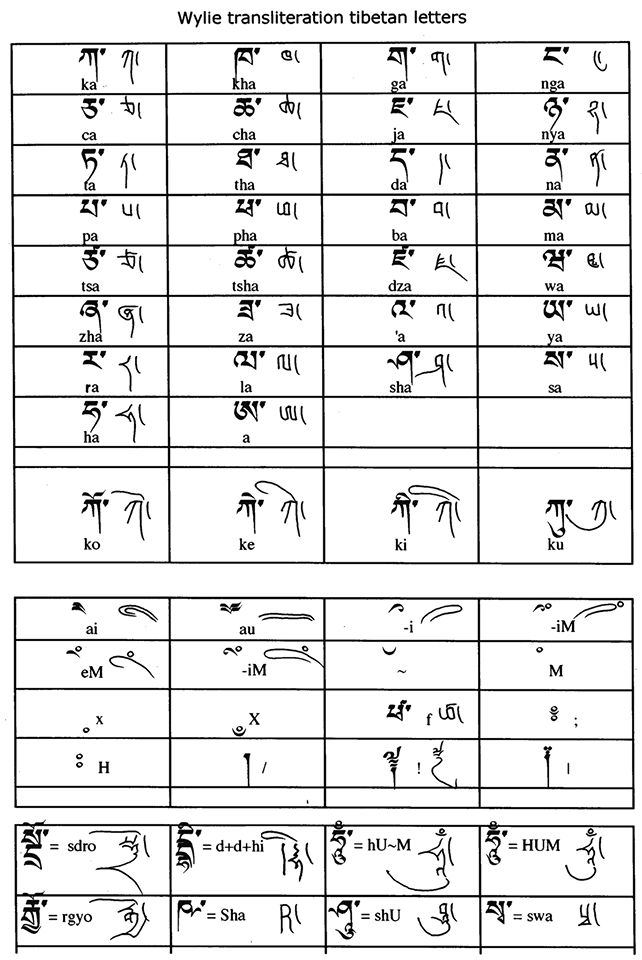 Wylie transliteration tibetan letters
ཀ་ ཀ། ཁ་ ཁ། ག་ ག། ང་ ང།
ka kha ga nga
ཅ་ ཅ། ཆ་ ཆ། ཇ་ ཇ། ཉ་ ཉ།
ca cha ja nya
ཏ་ ཏ། ཐ་ ཐ། ད་ ད། ན་ ན།
ta tha da na
པ་ པ། ཕ་ ཕ། བ་ བ། མ་ མ།
pa pha ba ma
ཙ་ ཙ། ཚ་ ཚ། ཛ་ ཛ། ཝ་ ཝ།
tsa tsha dza wa
ཞ་ ཞ། ཟ་ ཟ། འ་ འ། ཡ་ ཡ།
zha za 'a ya
ར་ ར། ལ་ ལ། ཤ་ ཤ། ས་ ས།
ra la sha sa
ཧ་ ཧ། ཨ་ ཨ།
ha a
ཀོ་ ཀོ། ཀེ་ ཀེ། ཀི་ ཀི། ཀུ་ ཀུ།
ko ke ki ku
ai au -i -iM
eM -iM ~ M
x X f ;
H / ! |
= sdro = d+d+hi = hU~M = HUM
= rgyo = Sha = shU = swa